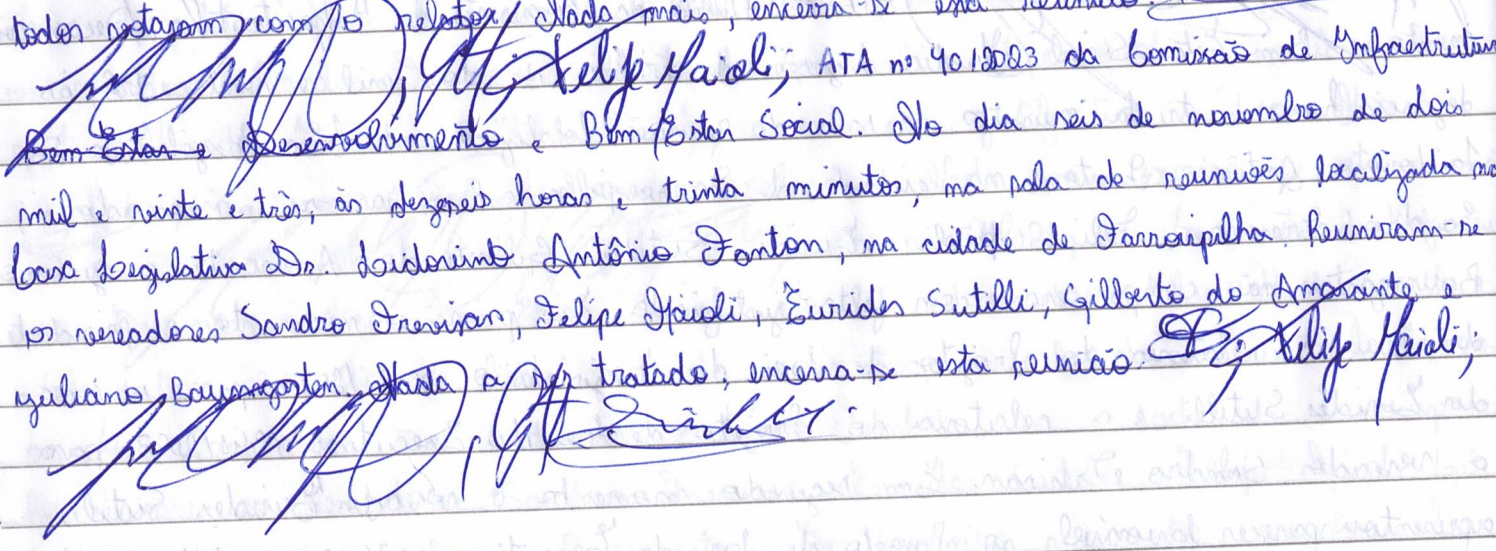 todos votaram com o relator. Nada mais, encerra-se esta reunião.
Felipe Maioli; ATA nº 40/2023 da Comissão de Infraestrutura
Bem Estar e Desenvolvimento e Bem Estar Social. No dia seis de novembro de dois
mil e vinte e três, às dezeseis horas e trinta minutos, na sala de reuniões localizada na
Casa Legislativa Dr. Lidovino Antônio Fanton, na cidade de Farroupilha. Reuniram-se
os vereadores Sandro Trevisan, Felipe Maioli, Eurides Sutilli, Gilberto do Amarante e
Juliano Baumgarten. Nada a ser tratado, encerra-se esta reunião. Felipe Maioli;